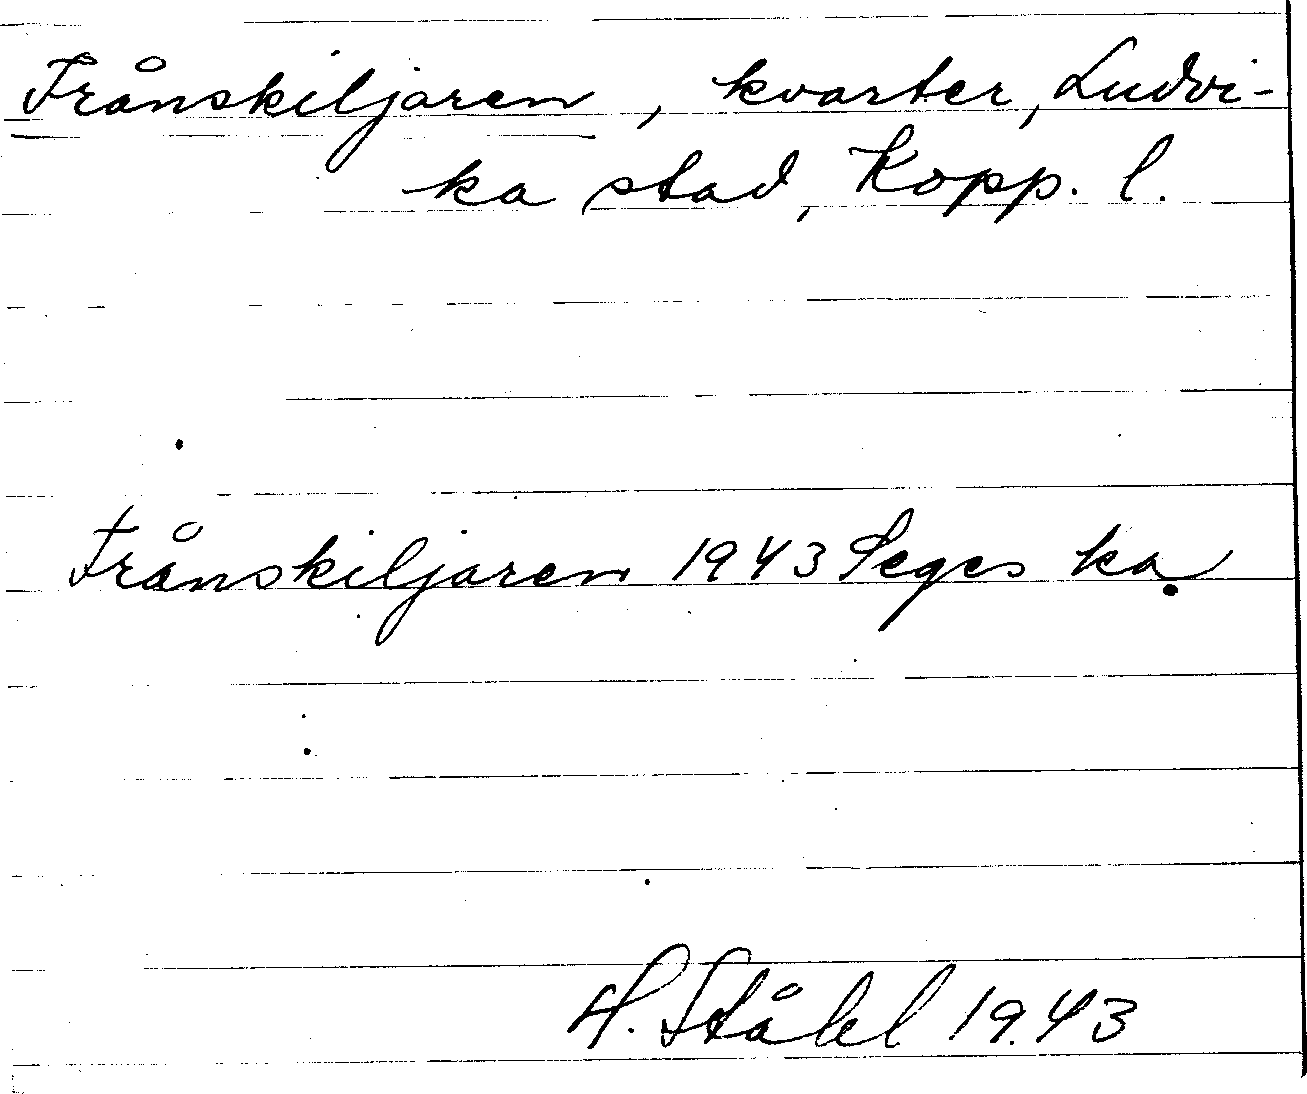 Frånskiljaren, kvarter, Ludvi-
ka stad, Kopp. l.
Frånskiljaren 1943 Seges ka
H. Ståhl 1943